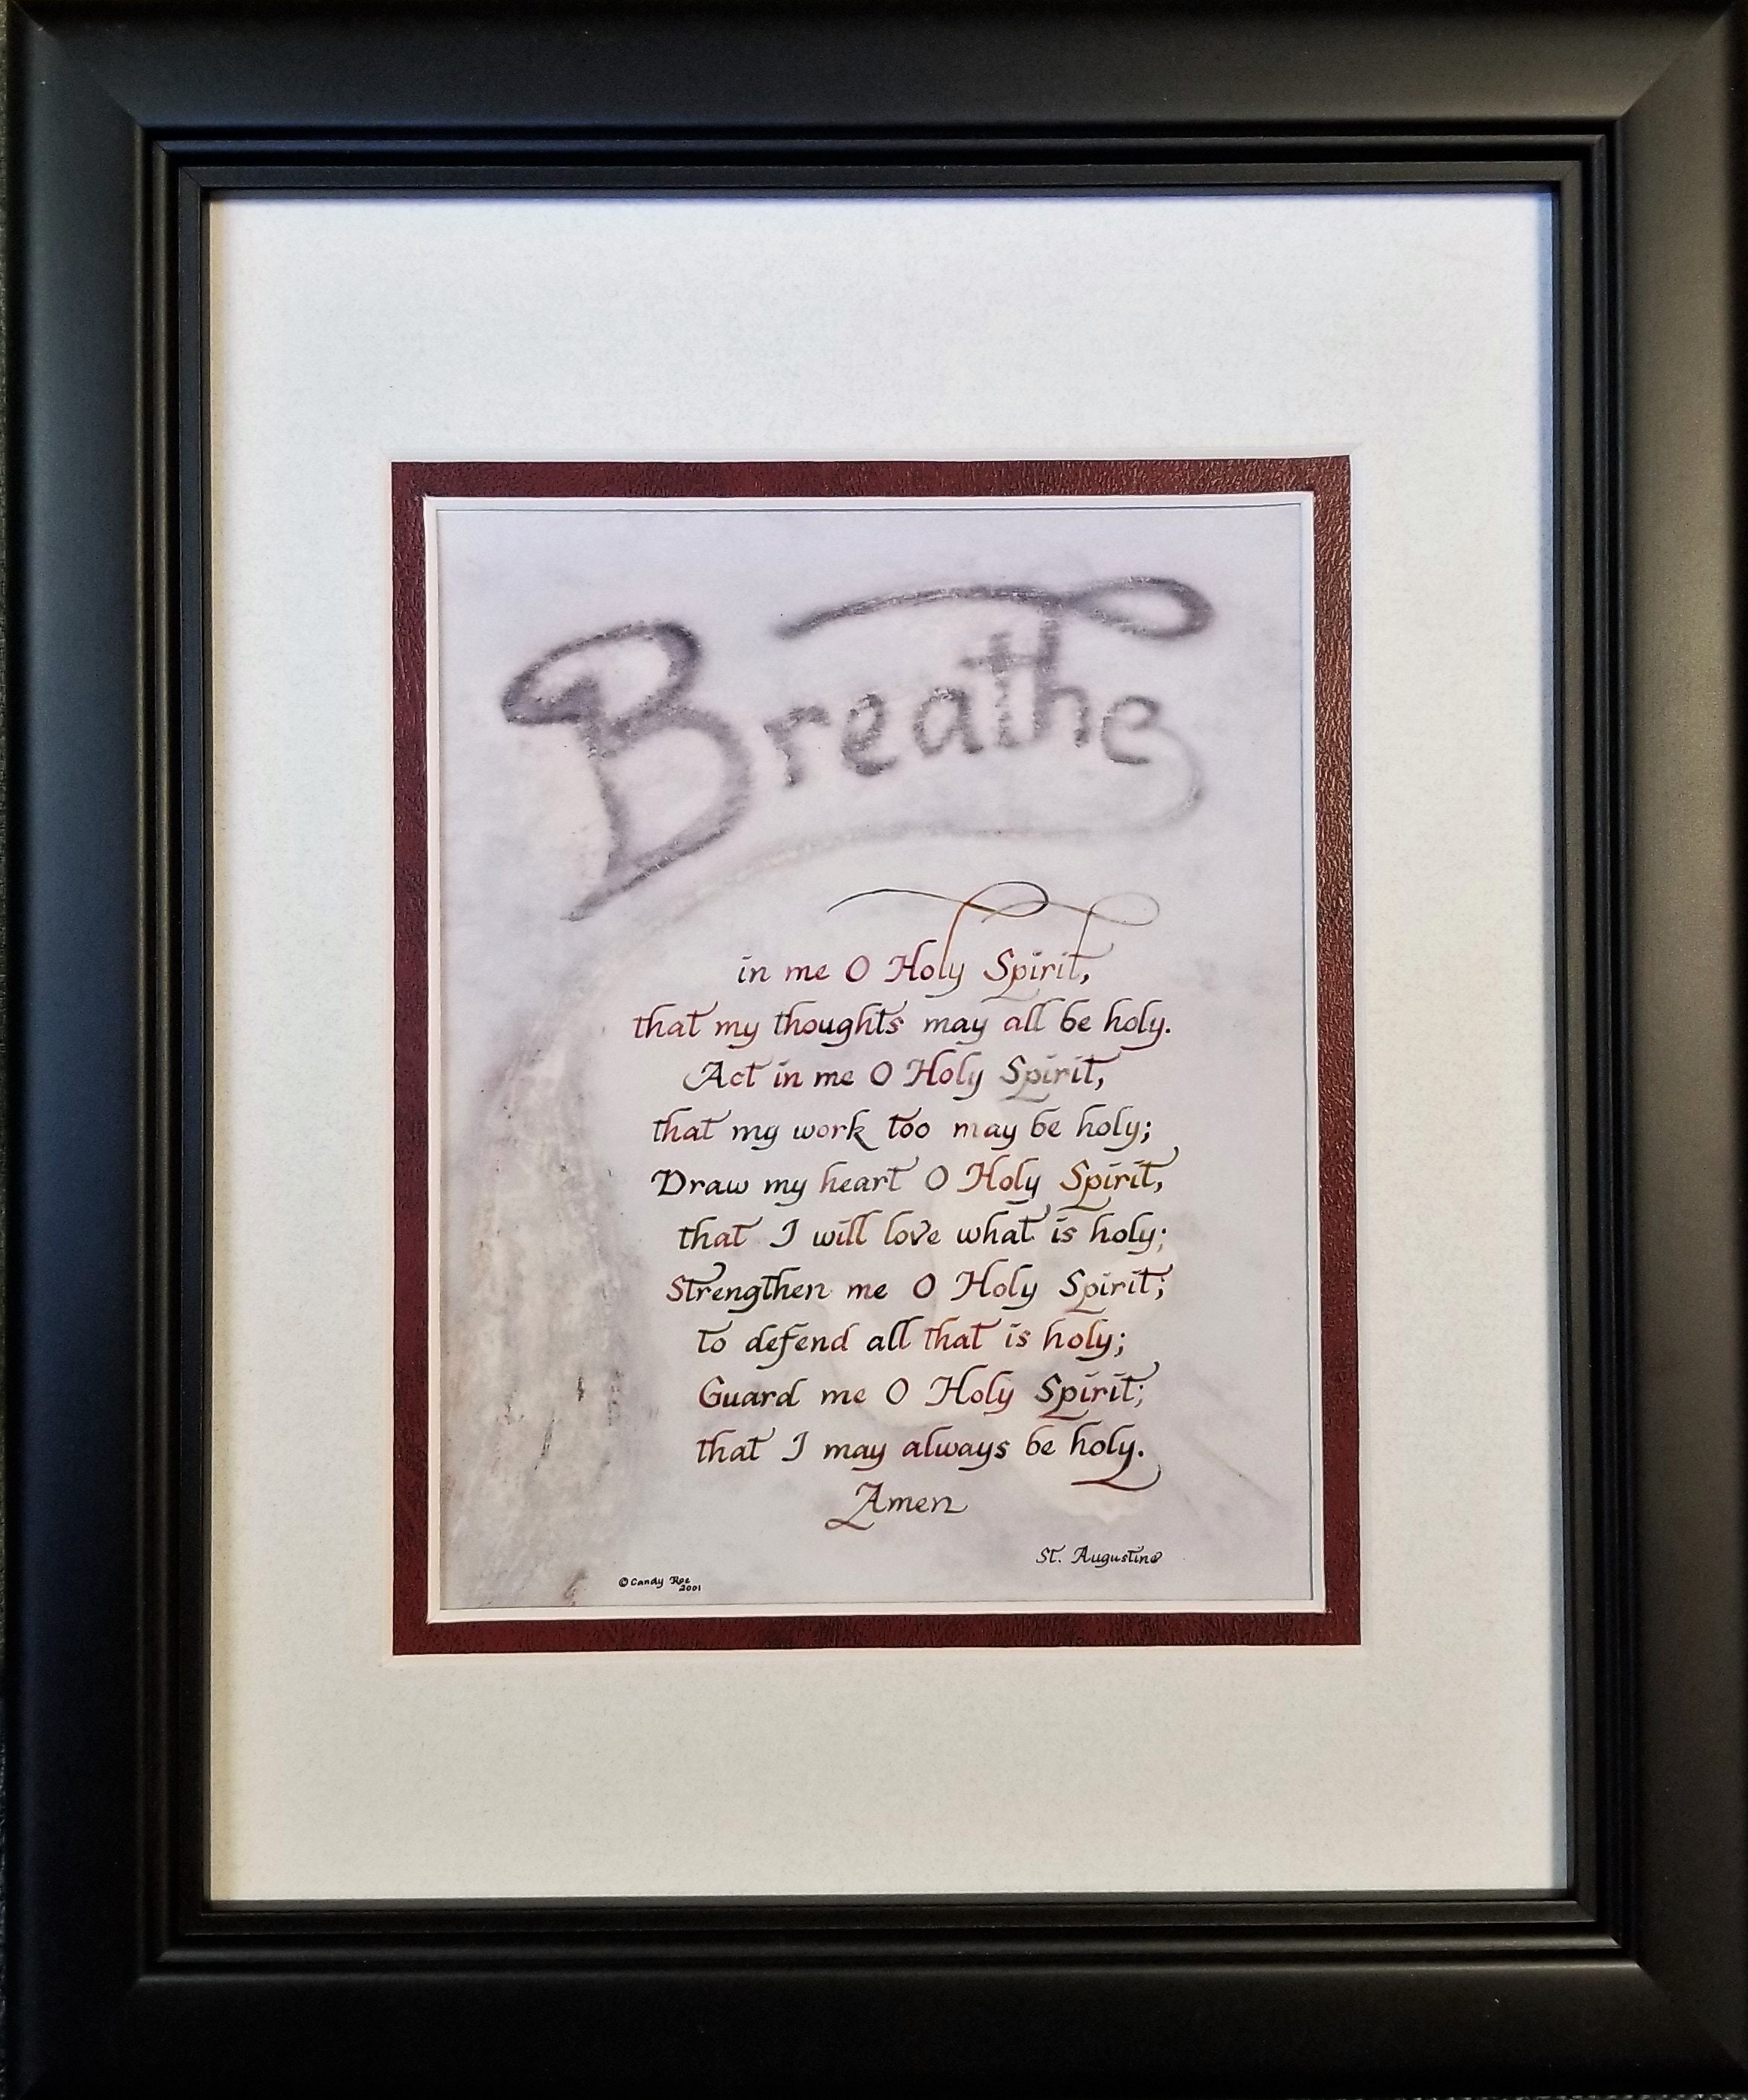 Breathe
in me O Holy Spirit,
that my thoughts may all be holy.
Act in me O Holy Spirit,
that my work too may be holy;
Draw my heart O Holy Spirit,
that I will love what is holy;
Strengthen me O Holy Spirit;
to defend all that is holy;
Guard me O Holy Spirit;
that I may always be holy.
Amen
St. Augustine
© Candy Roe
2001